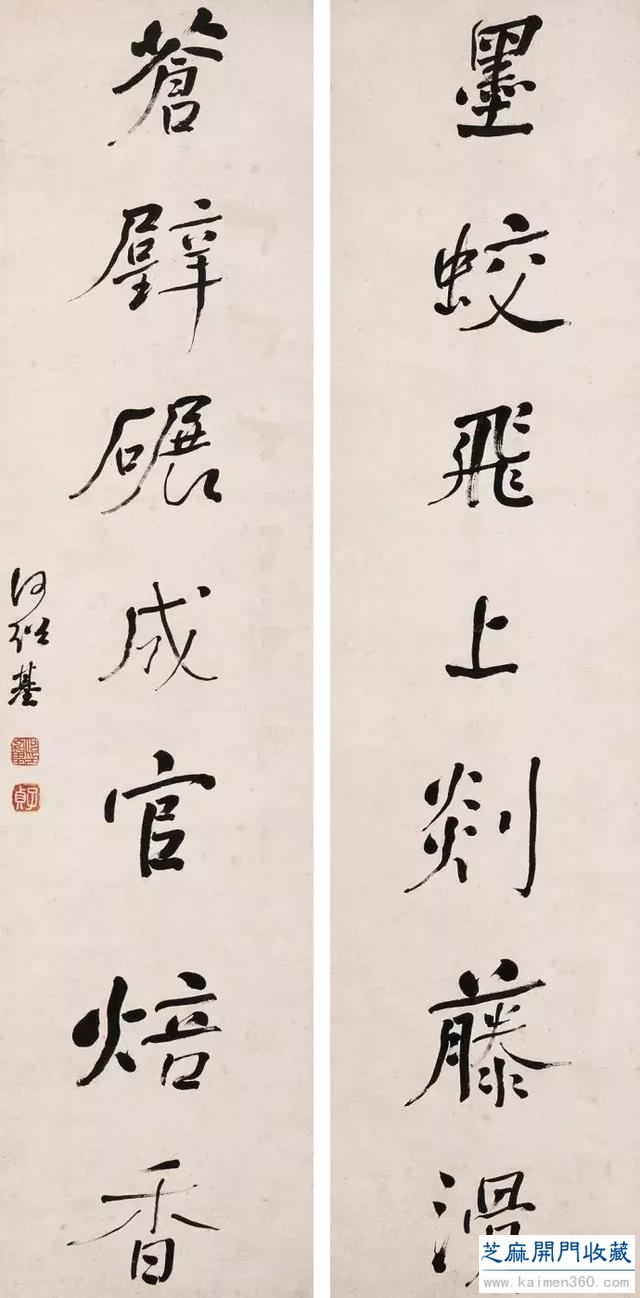 墨蛟飛上剡藤滑
蒼璧碾成官焙香
何紹基
何紹基印
子貞
芝麻開門收藏
www.kaimen360.com